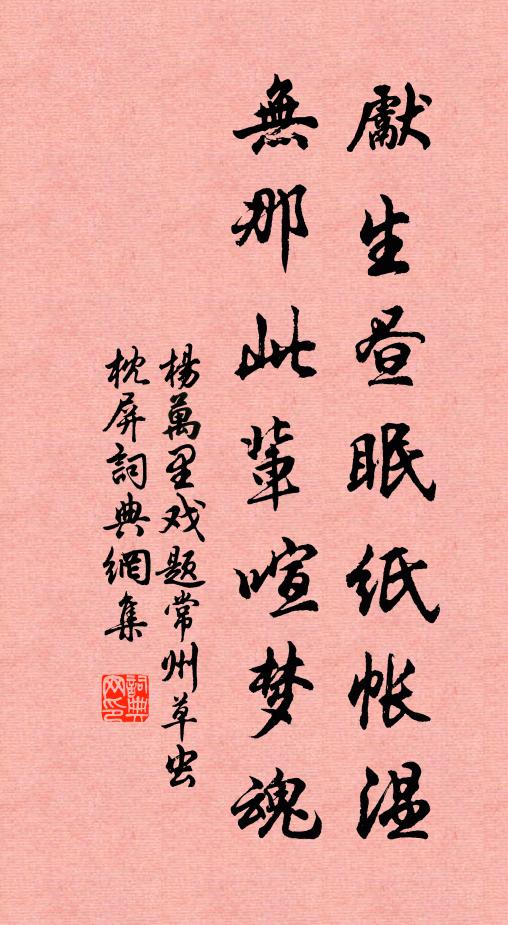 獻生昼眠纸帐温
無那此輩喧梦魂
楊萬里戏题常州草虫
枕屏詞典網集
詞典網印